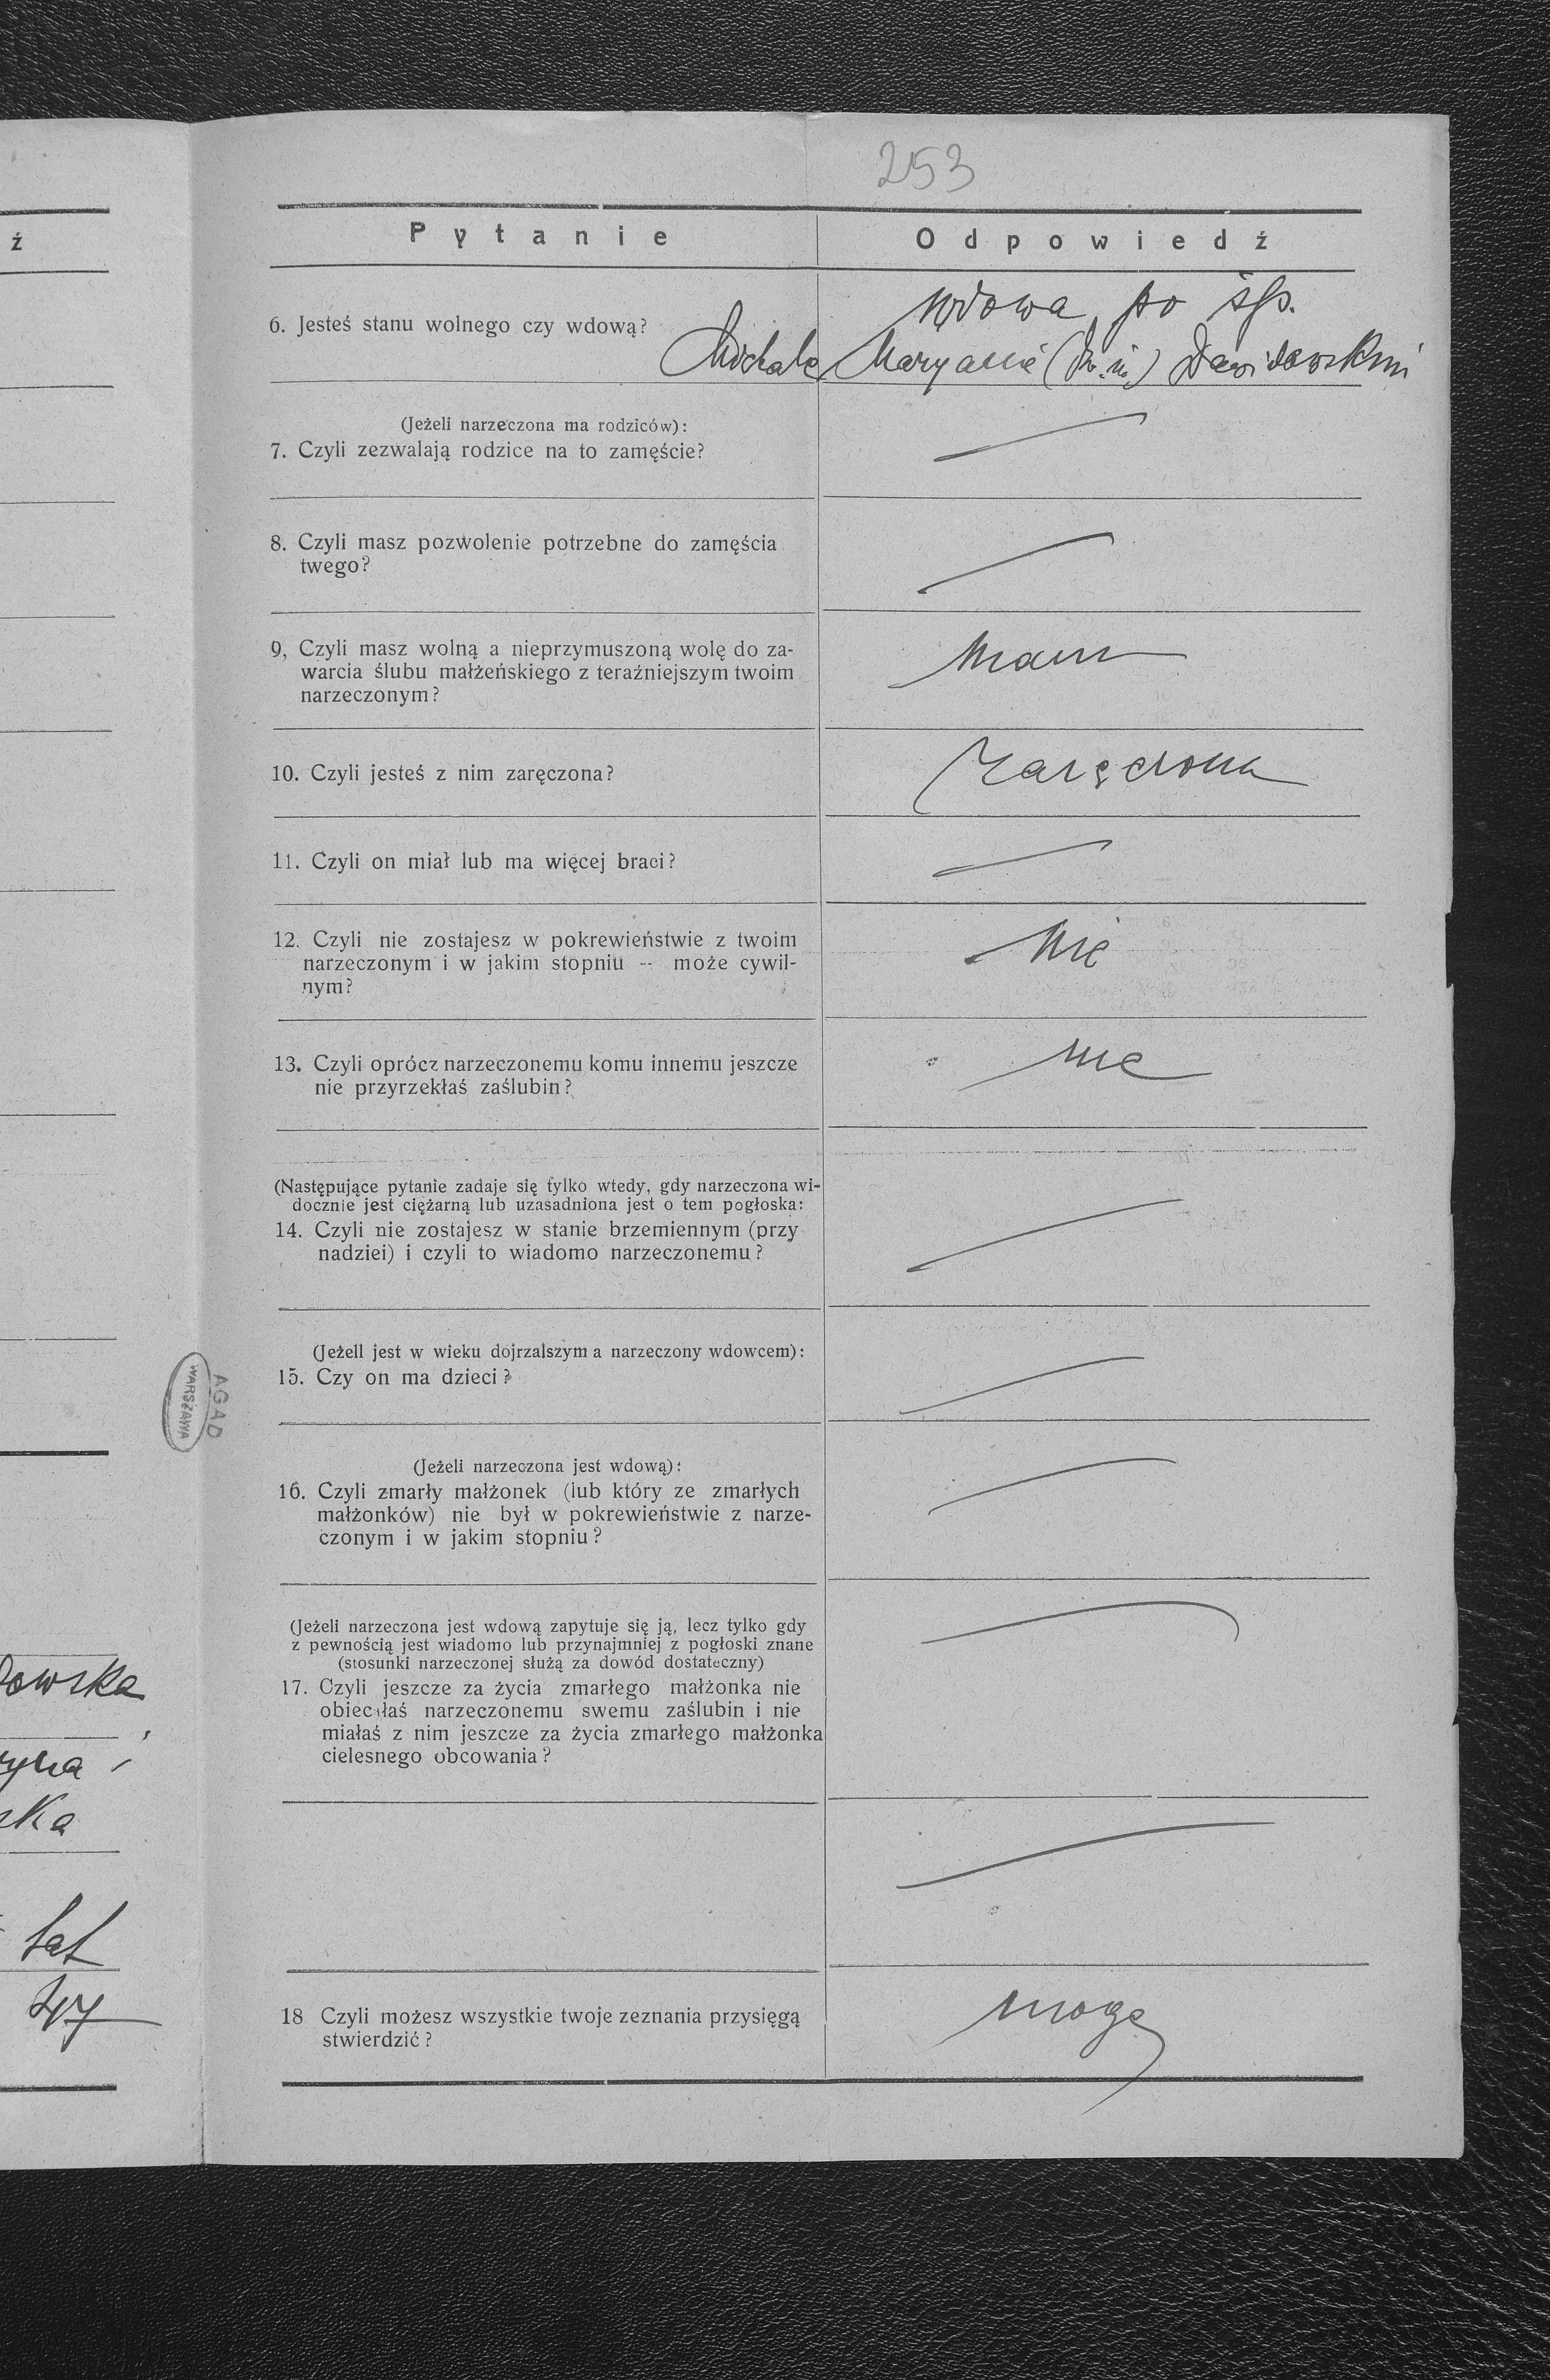 253
ź
Pytanie Odpowiedź
6. Jesteś stanu wolnego czy wdową? wdowa po śp.
Michale Maryanie (dw. im.) Dawidowskim
(Jeżeli narzeczona ma rodziców):
7. Czyli zezwalają rodzice na to zamęście?
8. Czyli masz pozwolenie potrzebne do zamęścia
twego?
9, Czyli masz wolną a nieprzymuszoną wolę do za-
warcia ślubu małżeńskiego z teraźniejszym twoim
narzeczonym?
mam
10. Czyli jesteś z nim zaręczona? zaręczona
11. Czyli on miał lub ma więcej braci?
12. Czyli nie zostajesz w pokrewieństwie z twoim
narzeczonym i w jakim stopniu -- może cywil-
nym?
nie
13. Czyli oprócz narzeczonemu komu innemu jeszcze
nie przyrzekłaś zaślubin?
nie
(Następujące pytanie zadaje się tylko wtedy, gdy narzeczona wi-
docznie jest ciężarną lub uzasadniona jest o tem pogłoska:
14. Czyli nie zostajesz w stanie brzemiennym (przy
nadziei) i czyli to wiadomo narzeczonemu?
(Jeżeli jest w wieku dojrzalszym a narzeczony wdowcem):
15. Czy on ma dzieci?
AGAD
WARSZAWA
(Jeżeli narzeczona jest wdową):
16. Czyli zmarły małżonek (lub który ze zmarłych
małżonków) nie był w pokrewieństwie z narze-
czonym i w jakim stopniu?
(Jeżeli narzeczona jest wdową zapytuje się ją, lecz tylko gdy
z pewnością jest wiadomo lub przynajmniej z pogłoski znane
(stosunki narzeczonej służą za dowód dostateczny)
17. Czyli jeszcze za życia zmarłego małżonka nie
obiecałaś narzeczonemu swemu zaślubin i nie
miałaś z nim jeszcze za życia zmarłego małżonka
cielesnego obcowania?
18 Czyli możesz wszystkie twoje zeznania przysięgą
stwierdzić?
mogę
owska
ska
lat